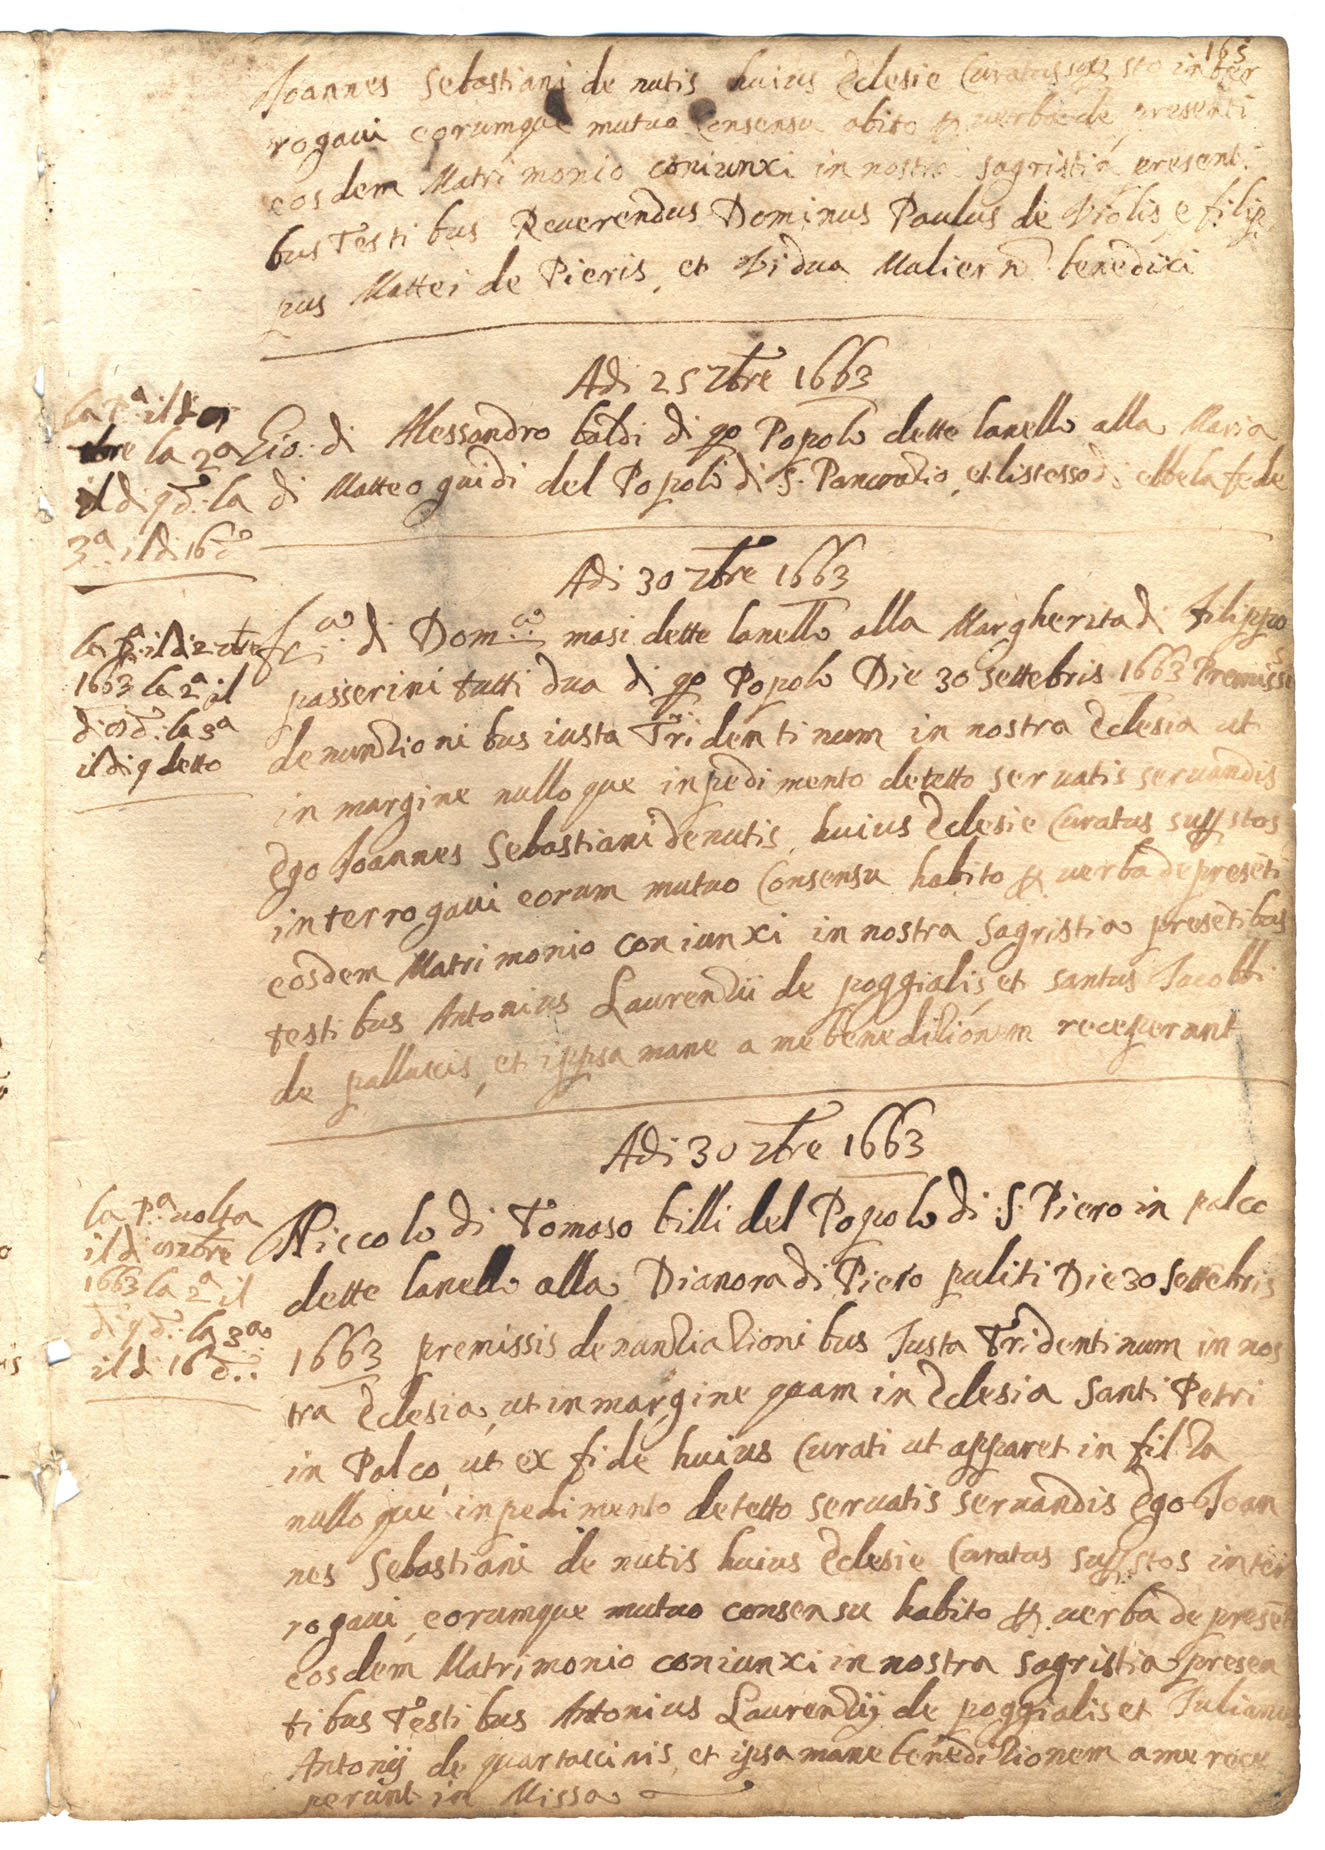 165
Joannes Sebastiani de nutis huius Eclesie Curatus supsto inter
rogaui eorumque mutuo Consensu abito p uerba de presenti
eosdem Matrimonio coniunxi in nostra sagristia present
bus Testibus Reuerendus Dominus Paulus de Violis, e filip
pus Mattei de Pieris, et Vidua Mulier n benedixi
Adi 25 7bre 1663
la Pa il di
la 2a
il di 9 d. la
3a il di 16 do
Gio: di Alessandro baldi di qo Popolo dette lanello alla Maria
di Matteo guidi del Popolo di S. Pancratio, et listesso di ebbe la fede
Adi 30 7bre 1663
la Pa il di 2 7bre
1663 la 2a il
di d. la 3a
il di 9 detto
di Domco masi dette lanello alla Margherita di filippo
passerini tutti dua di qo Popolo Die 30 settebris 1663 Premissis
denuntionibus iusta Tridentinum in nostra Eclesia ut
in margine nulloque inpedimento detetto seruatis seruandis
Ego Joannes Sebastiani de nutis, huius Eclesie Curatus supstos
interrogaui eorum mutuo Consensu habito p uerba de preseti
eosdem Matrimonio coniunxi in nostra sagristia presetibus
testibus Antonius Laurentii de poggialis, et santus Jacobbi
de palluccis, et ippsa mane a me beneditionem receperunt
Adi 30 7bre 1663
la Pa uolta
il di 7bre
1663 la 2a il
di 9 d. la 3a
il di 16 d.
Niccolo di Tomaso billi del Popolo di S. Piero in palco
dette lanello alla Dianora di Piero puliti Die 30 Settebris
1663 premissis denuntiationibus Justa Tridentinum in nos
tra Eclesia, ut in margine quam in Eclesia Santi Petri
in Palco, ut ex fide huius Curati ut apparet in filza
nulloque inpedimento detetto seruatis seruandis Ego Joan
nes Sebastiani de nutis huius Eclesie Curatus supstos inter
rogaui, eorumque mutuo consensu habito p uerba de preset
eosdem Matrimonio coniunxi in nostra sagristia presen
tibus Testibus Antonius Laurentij de poggialis et Julianus
Antonij de quartaccinis, et ipsa mane beneditionem a me rece
perunt in Missa